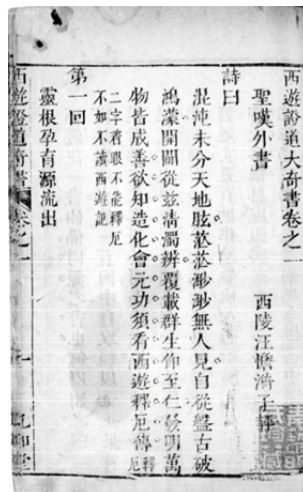 西遊證道大奇書卷之一
聖嘆外書
西陵汪憺漪子評
詩曰
混沌未分天地眩茫茫渺渺無人見自從盤古破
鴻濛開闢從茲清濁辨覆載群生仰至仁發明萬
物皆成善欲知造化會元功須看西遊釋厄傳釋
二字着眼不能釋厄
不如不讀西遊記
第一回
靈根孕育源流出
西遊證道奇書 卷之一 一